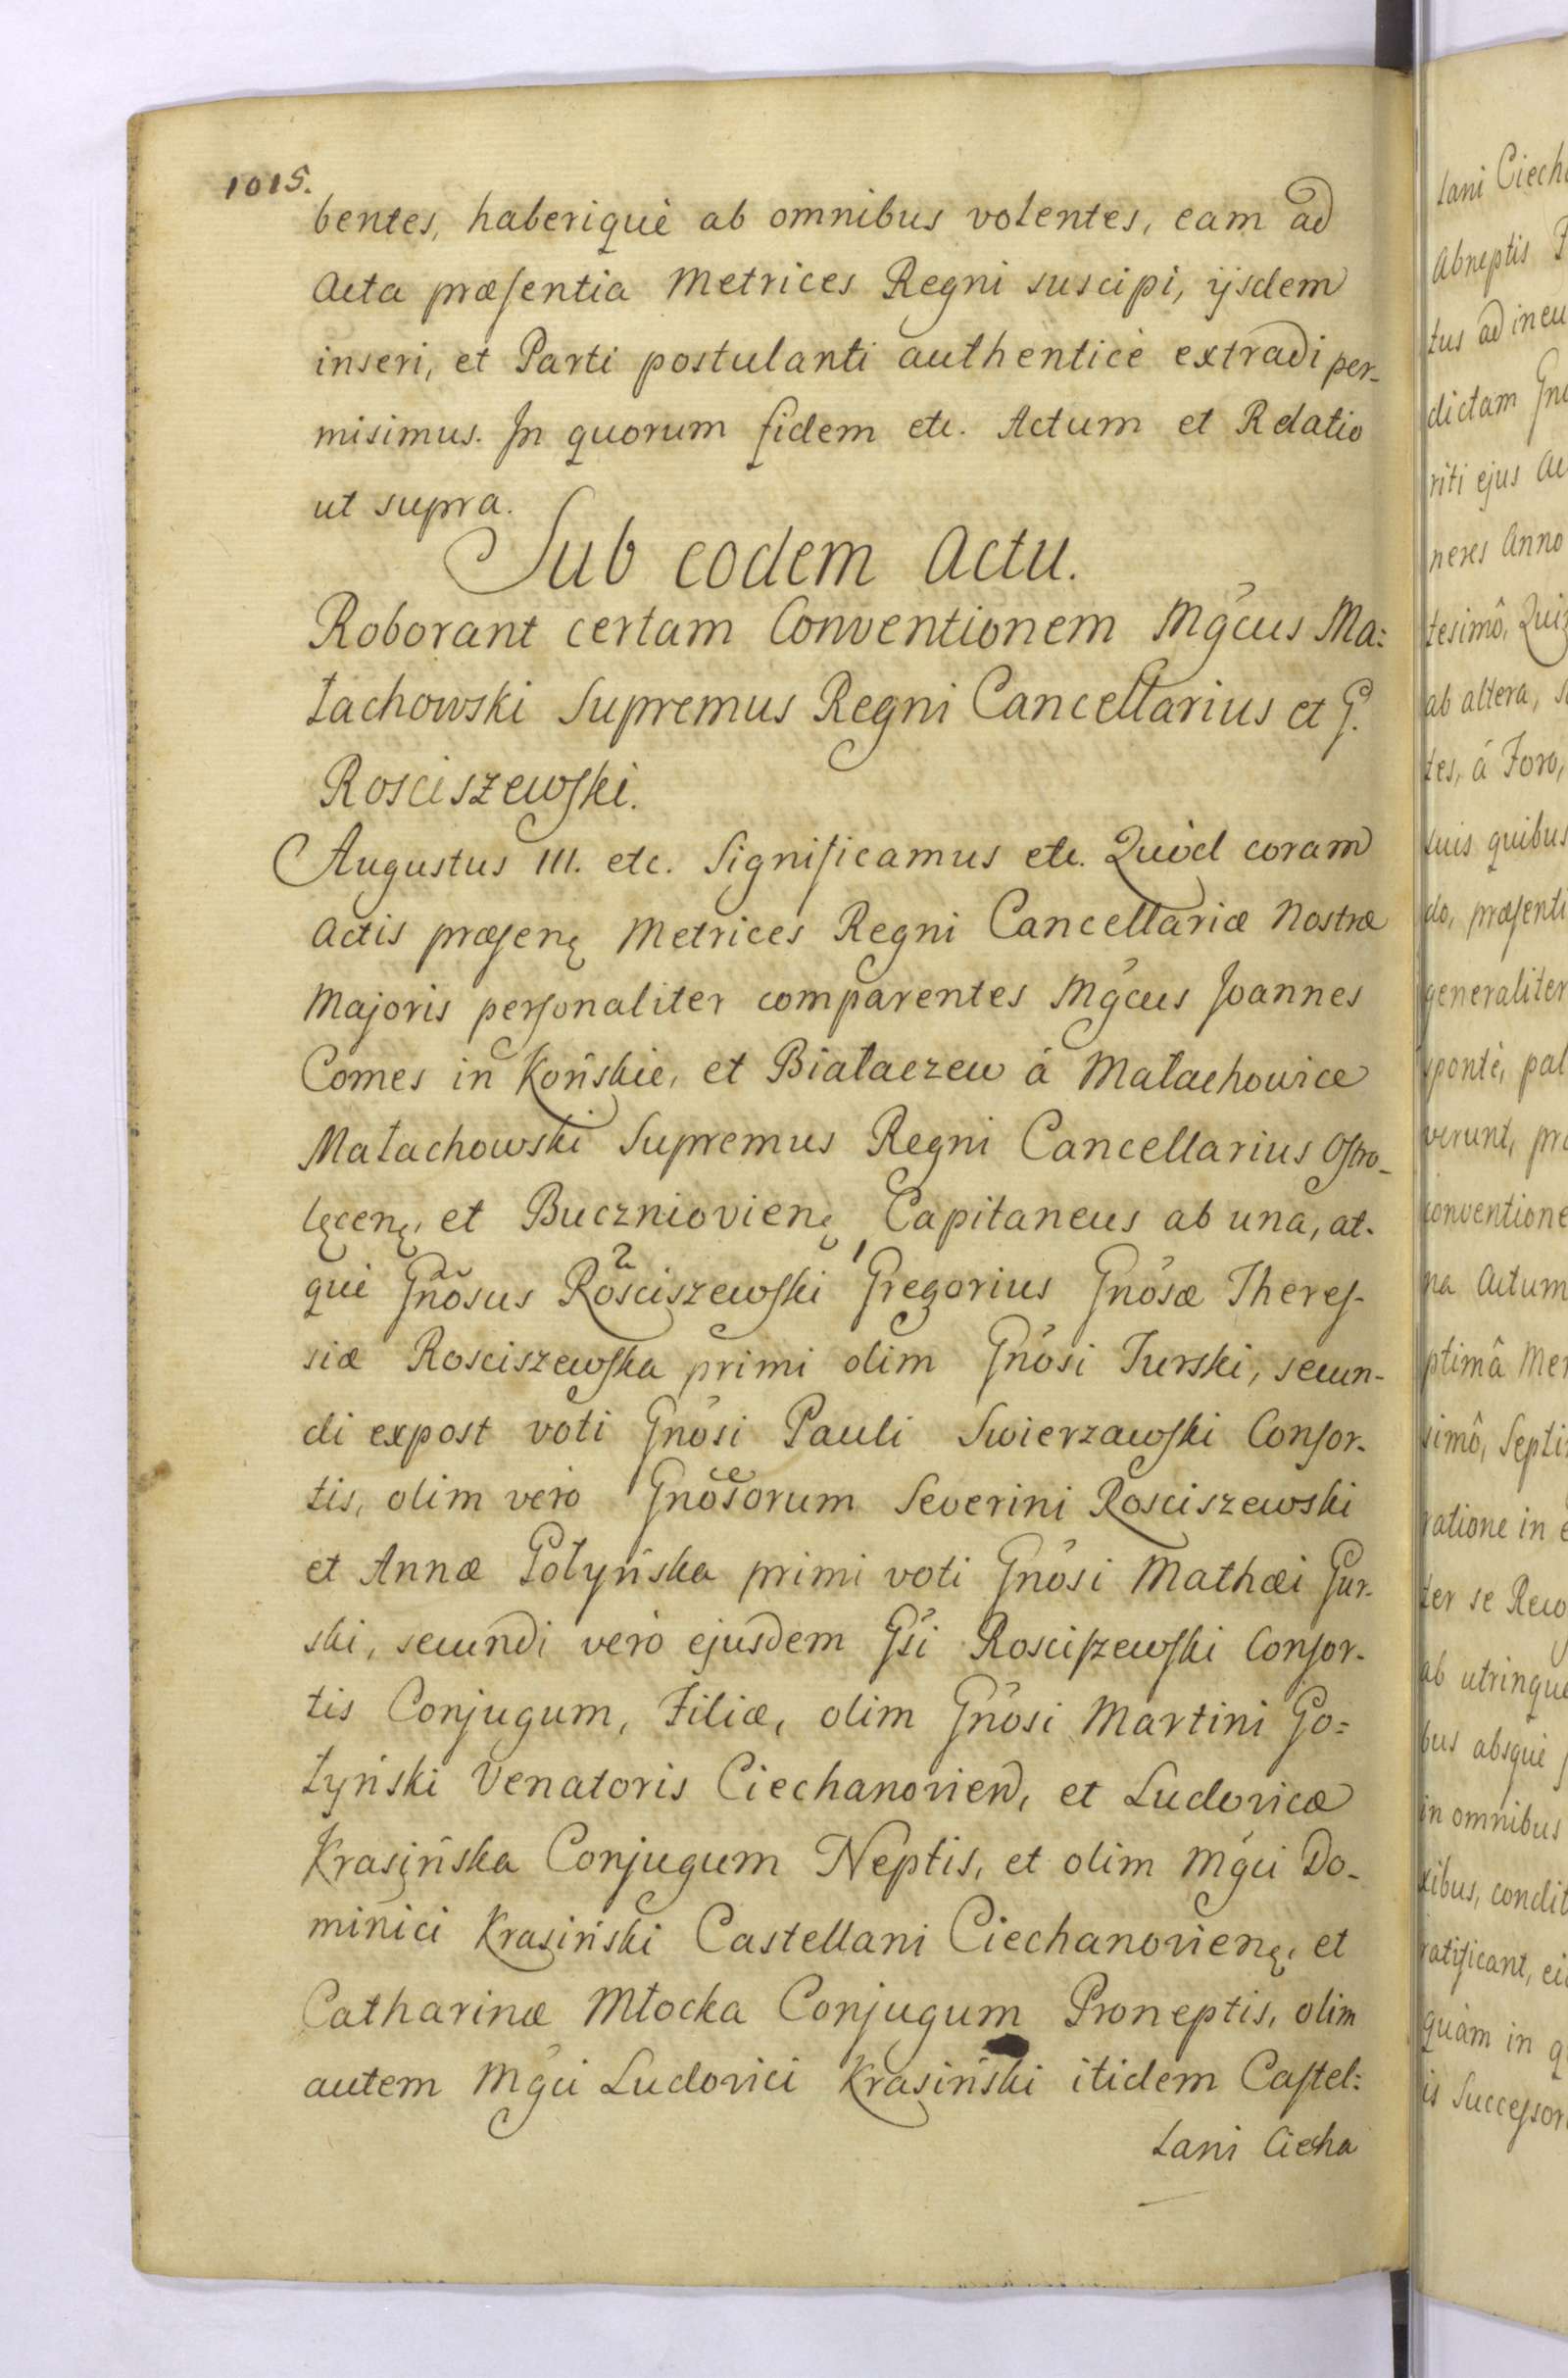 1015.
bentes, haberiquè ab omnibus volentes, eam ad
Acta præsentia Metrices Regni suscipi, ijsdem
inseri, et Parti postulanti authenticè extradi per-
misimus. In quorum fidem etc. Actum et Relatio
ut supra.
Sub eodem Actu.
Roborant certam Conventionem Mgcus Ma:
łachowski Supremus Regni Cancellarius et G.
Rosciszewski.
Augustus III. etc. Significamus etc. Quòd coram
Actis præsenę Metrices Regni Cancellariæ Nostræ
Majoris personaliter comparentes Mgcus Joannes
Comes in Końskie, et Białaczew á Małachowice
Małachowski Supremus Regni Cancellarius Ostro-
lęcenę, et Buczniovienę Capitaneus ab una, at-
què Gnősus 2 Rosciszewski 1 Gregorius Gnősæ There-
siæ Rosciszewska primi olim Gnősi Turski, secun-
di expost voti Gnősi Pauli Swierzawski Consor-
tis, olim verò Gnősorum Severini Rosciszewski
et Annæ Gołyńska primi voti Gnősi Mathæi Gur-
ski, secundi verò ejusdem Gsi Rosciszewski Consor-
tis Conjugum, Filiæ, olim Gnősi Martini Go:
łyński Venatoris Ciechanovien, et Ludovicæ
Krasińska Conjugum Neptis, et olim Mgci Do-
minici Krasiński Castellani Ciechanovienę, et
Catharinæ Młocka Conjugum Proneptis, olim
autem Mgci Ludovici Krasiński itidem Castel:
lani Ciecha
lani Ciech
Abneptis
tus ad ineu
dictam
riti ejus
neres Anno
tesimô,
ab altera,
tes, á Foro,
suis quibus
do, præsenti
generaliter
spontè, pal
verunt,
conventione
na Actum
ptimâ Mer
simô, Septi
ratione in
ter se
ab utrinque
bus absque
in omnibus
condit
ratificant,
quàm in
is Successor